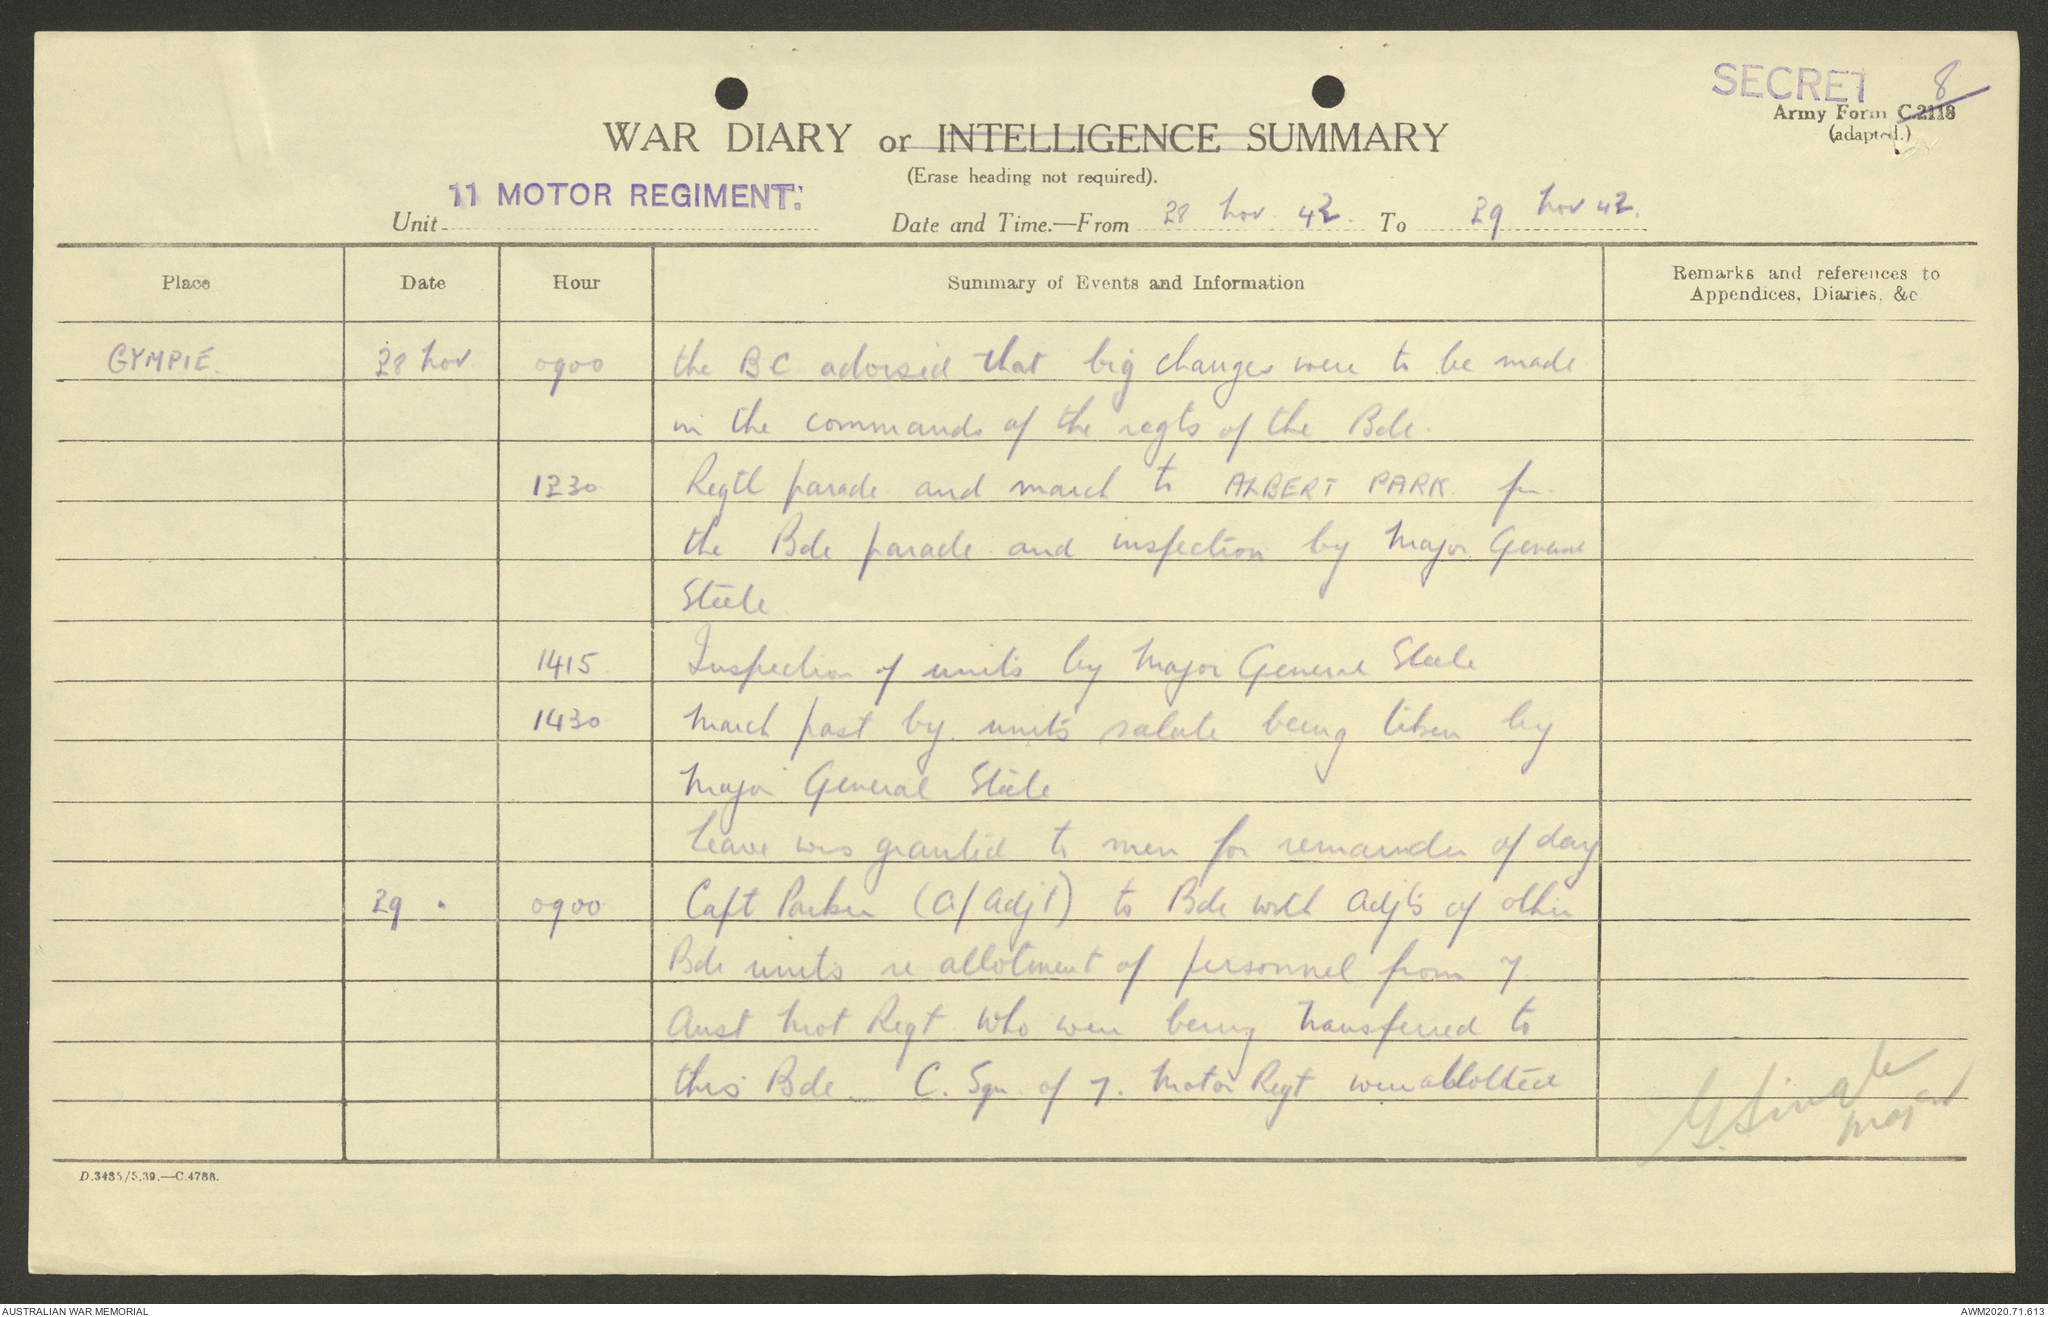 SECRET 8
Army Form C.2118
(adapted.)
WAR DIARY or INTELLIGENCE SUMMARY
(Erase heading not required).
11 MOTOR REGIMENT.
Unit Date and Time.—From 28 Nov. 42. To 29 Nov 42.
Place Date Hour Summary of Events and Information Remarks and references to
Appendices, Diaries, &c
GYMPIE. 28 Nov 0900 the BC advised that big changes were to be made
in the commands of the regts of the Bde.
1230 Regtl parade and march to ALBERT PARK for
the Bde parade and inspection by Major General
Steele.
1415 Inspection of units by Major General Steele
1430 March past by units salute being taken by
Major General Steele
Leave was granted to men for remainder of day
29 " 0900 Capt Parker (a/adjt) to Bde with adjts of other
Bde units re allotment of personnel from 7
Aust Mot Regt who were being transferred to
this Bde. C. Sqn. of 7. Motor Regt were allotted
Major
D.3485/5.39.—C.4788.
AUSTRALIAN WAR MEMORIAL AWM2020.71.613